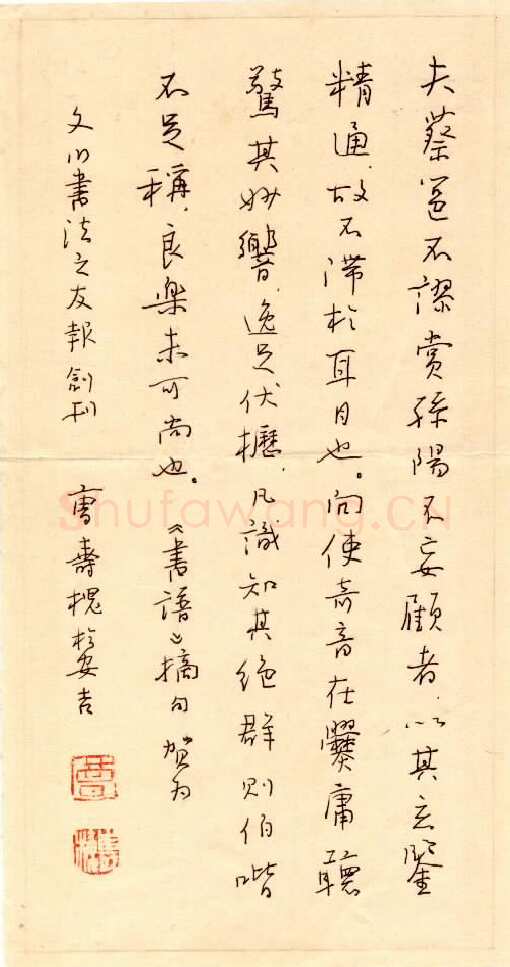 夫蔡邕不謬賞孫陽不妄顧者,以其玄鑒
精通,故不滯於耳目也。向使奇音在爨庸聽
驚其妙響,逸足伏櫪,凡識知其絕群則伯喈
不足稱,良樂未可尚也。《書譜》摘句 贺为
文書法之友報創刊 曹壽槐於安吉
Shufawang.CN